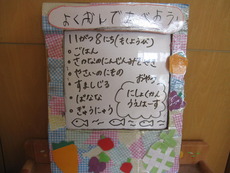 よくかんでたべよう
11がつ8にち(もくようび)
・ごはん
・さかなのにんじんみそやき
・やさいのにもの
・すましじる
・ばなな
・ぎゅうにゅう
おやつ
にしょくかん
うえはーす